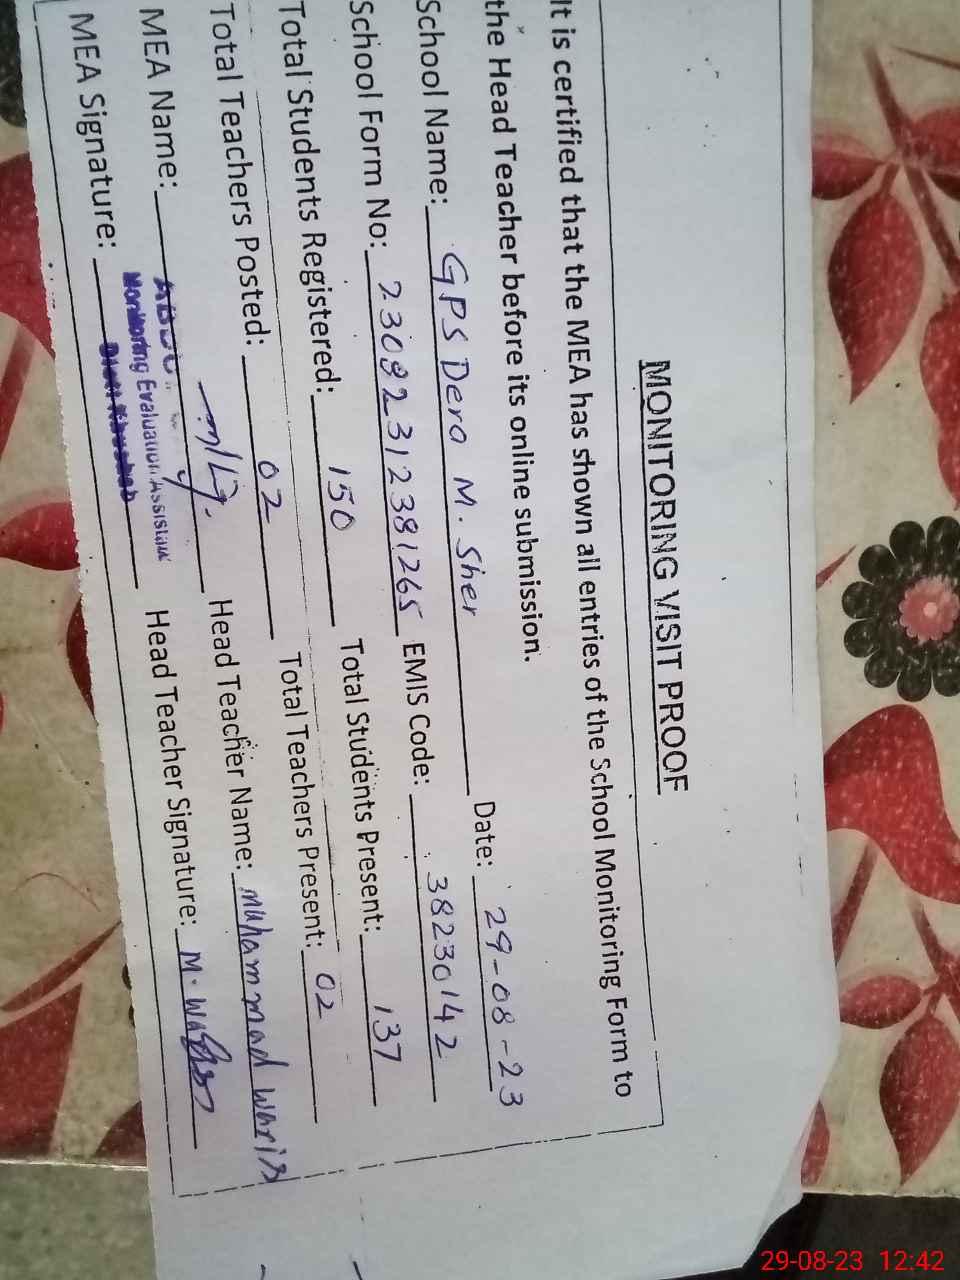 MONITORING VISIT PROOF
It is certified that the MEA has shown all entries of the School Monitoring Form to
the Head Teacher before its online submission.
School Name: GPS Dera M. Sher Date: 29-08-23
School Form No: 23082312381265 EMIS Code: 38230142
Total Students Registered: 150 Total Students Present: 137
Total Teachers Posted: 02 Total Teachers Present: 02
MEA Name: Head Teacher Name: Muhammad Waris
Monitoring Evaluation Assistant
MEA Signature: Head Teacher Signature: M. Waris
29-08-23 12:42